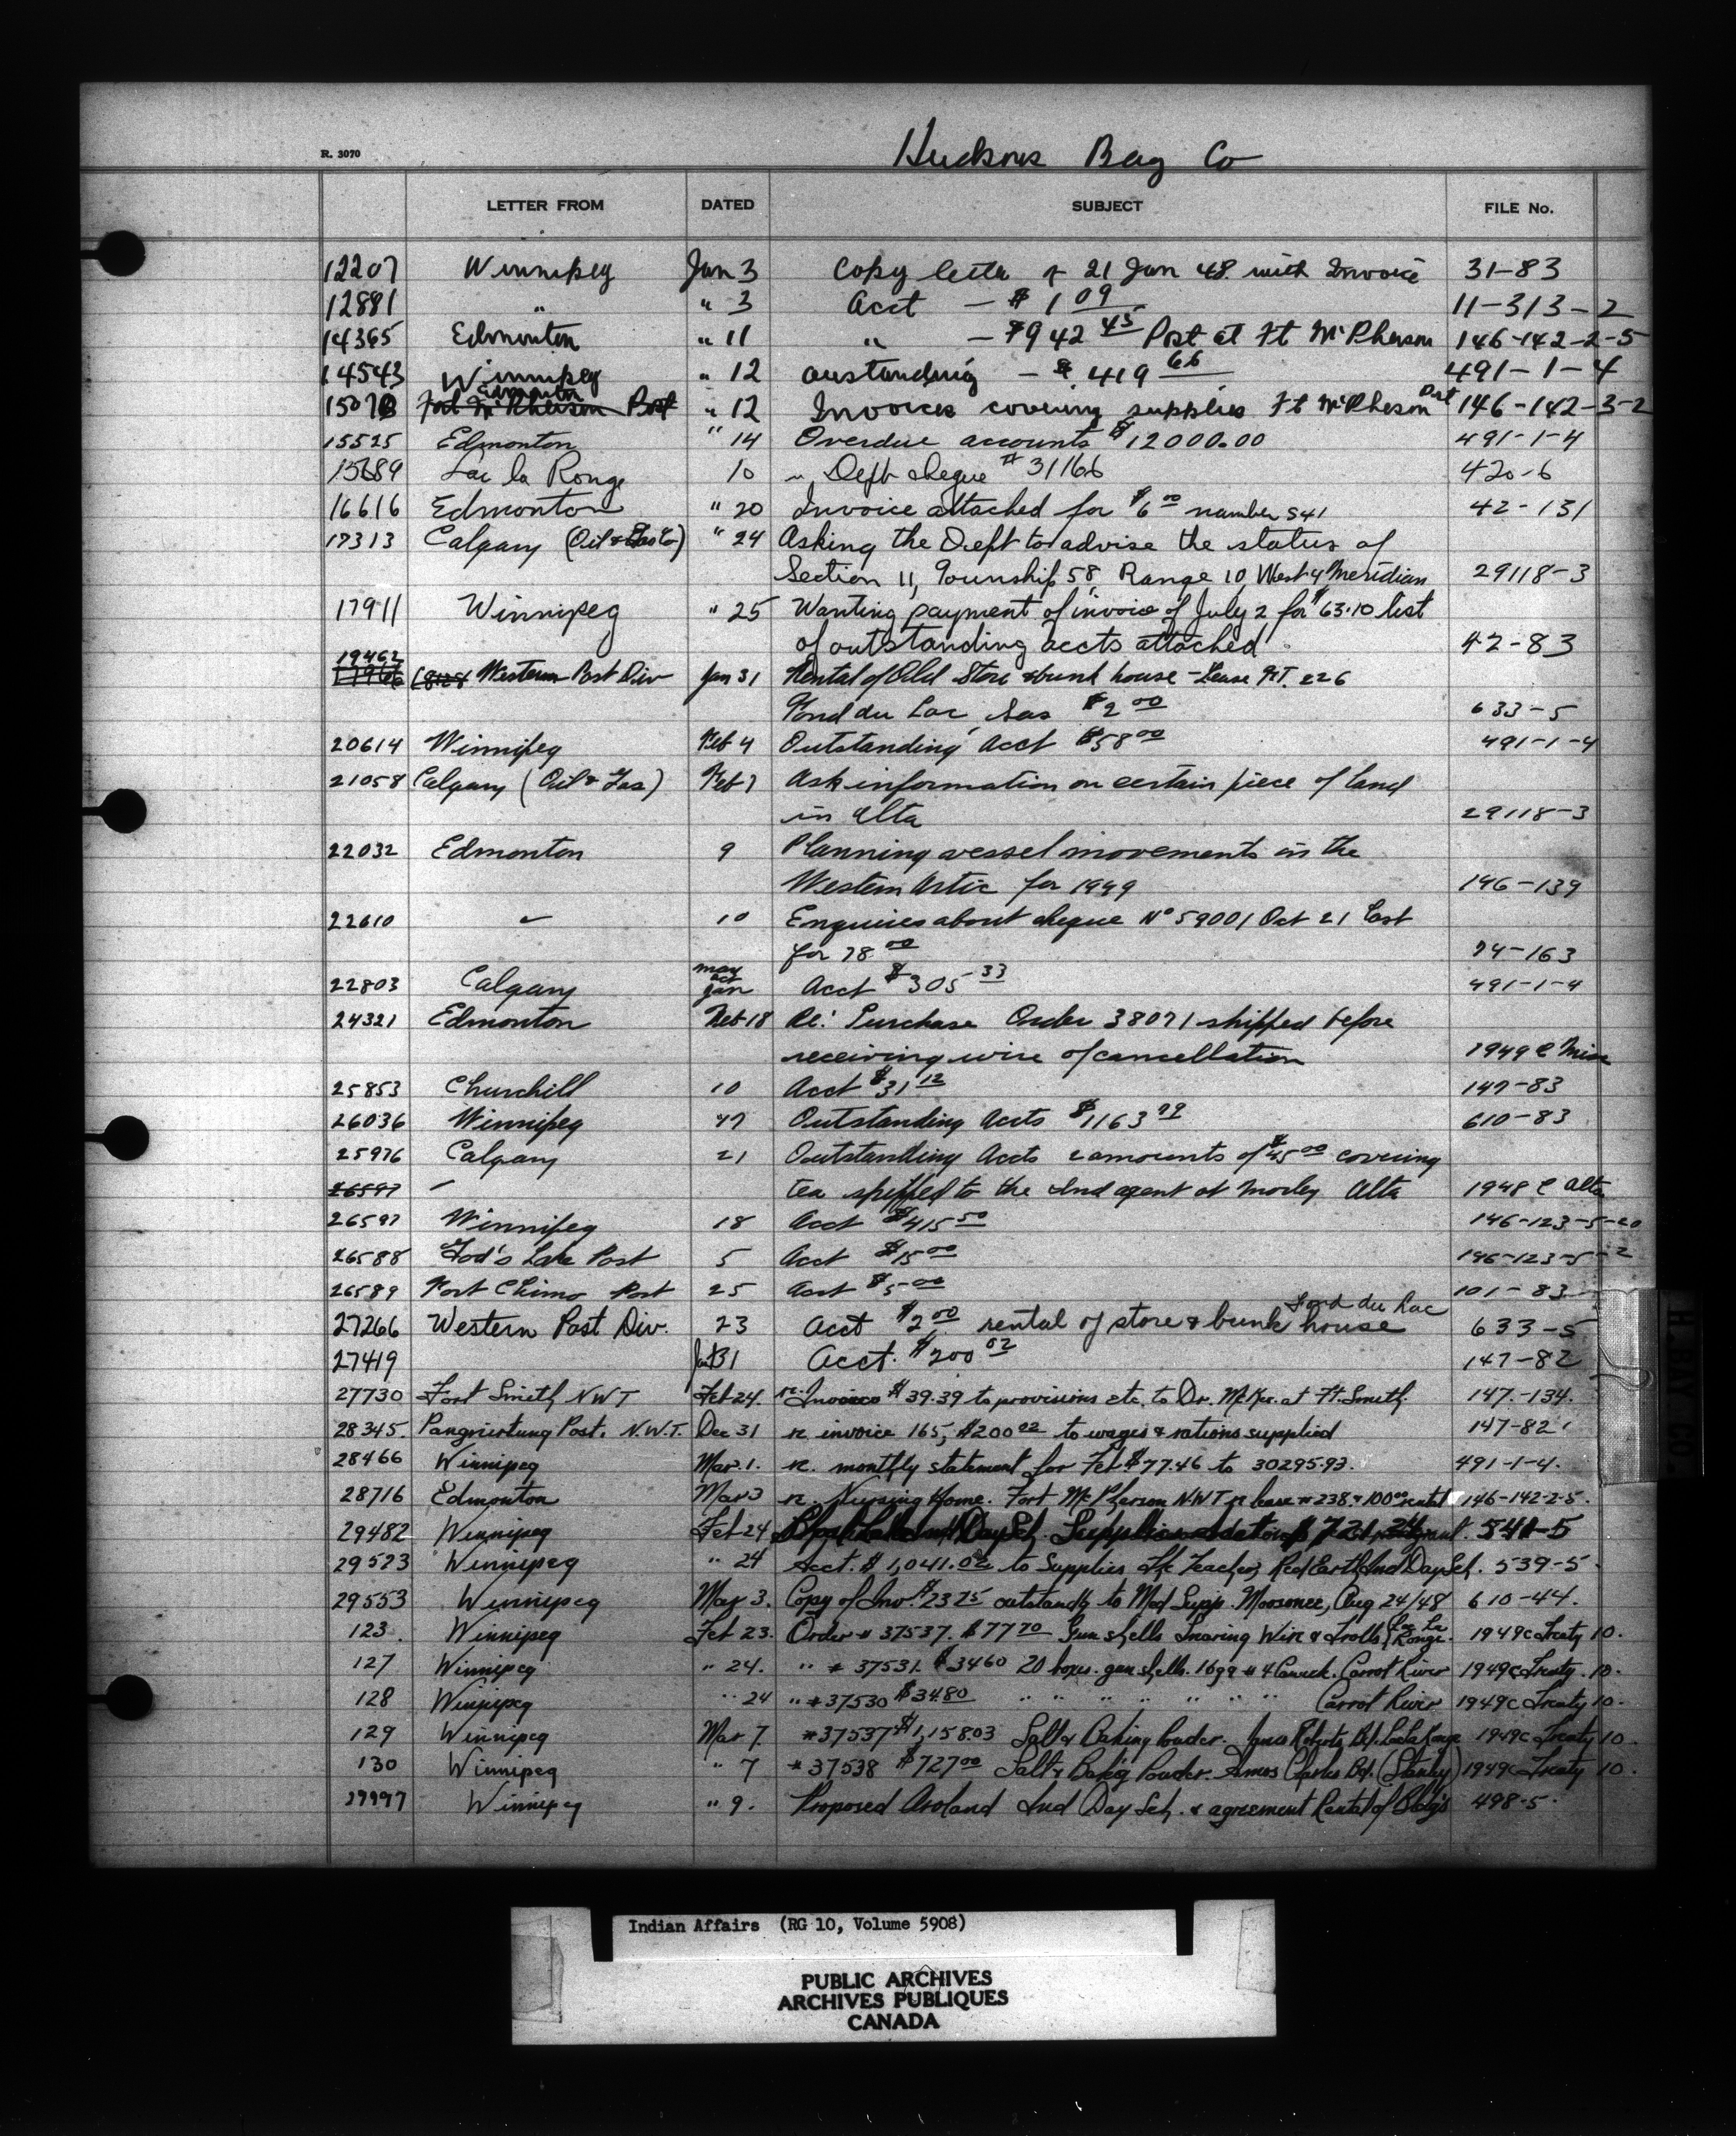 R. 3070
Hudsons Bay Co
LETTER FROM DATED SUBJECT FILE No.
12207 Winnipeg Jan 3 Copy letter of 21 Jan 48 with Invoice 31-83
12881 " " 3 Acct - $1 09 11-313-2
14365 Edmonton " 11 " - $942 45 Post at Ft McPherson 146-142-2-5
14543 Winnipeg " 12 oustanding - $419 66 491-1-4
Edmonton
1507 Fort McPherson Post " 12 Invoices covering supplies Ft McPherson Post 146-142-3-2
15525 Edmonton " 14 Overdue accounts $12000.00 491-1-4
15689 Lac la Ronge 10 " Dept cheque # 31166 420-6
16616 Edmonton " 20 Invoice attached for $6 00 number 541 42-131
17313 Calgary (Oil & Gas Co) " 24 Asking the Dept to advise the status of
Section 11, Township 58, Range 10, West 4 Meridian 29118-3
17911 Winnipeg " 25 Wanting payment of invoice of July 2 for $63.10 list
of outstanding accts attached 42-83
19462
Western Post Div Jan 31 Rental of Old Store & bunk house - Lease FT. 226
Fond du Lac, Sas $2 00 633-5
20614 Winnipeg Feb 4 Outstanding Acct $58 00 491-1-4
21058 Calgary (Oil & Gas) Feb 7 Ask information on certain piece of land
in Alta 29118-3
22032 Edmonton 9 Planning vessel movements in the
Western Artic for 1949 146-139
22610 " 10 Enquiries about cheque No 59001 Oct 21 last
for 78 00 74-163
May
Oct
22803 Calgary Jan Acct $305 33 491-1-4
24321 Edmonton Feb 18 Re: Purchase Order 38071 shipped before
receiving wire of cancellation 1949 C Misc
25853 Churchill 10 Acct $31 12 147-83
26036 Winnipeg Outstanding Accts $1163 99 610-83
25976 Calgary 21 Outstanding Accts 2 amounts of $45 00 covering
26597 " tea shipped to the Ind agent at Morley Alta 1948 C Alta
26597 Winnipeg 18 Acct $415 50 146-123-5-20
26588 God's Lake Post 5 Acct $15 00 146-123-5-2
26589 Fort Chimo Post 25 Acct $5 00 101-83
Fond du Lac
27266 Western Post Div. 23 Acct $2 00 rental of store & bunk house 633-5
27419 Jan 31 Acct. $200 02 147-82
27730 Fort Smith NWT Feb 24. re. Invoice $39.39 to provisions etc. to Dr. at Ft. Smith. 147.-134.
28345. Pangnirtung Post. N.W.T. Dec 31 re invoice 165, $200 02 to wages & rations supplied 147-82
28466 Winnipeg Mar. 1. re. monthly statement for Feb $77.46 to 30295.93. 491-1-4.
28716 Edmonton Mar 3 re. Nursing Home. Fort McPherson N.W.T re lease # 238. $100 00 rental 146-142-2-5.
29482 Winnipeg Feb 24 Ind Day Sch. Supplies 541-5
29523 Winnipeg " 24 Acct. $1,041.02 to Supplies Teacher, Red Earth Ind Day Sch. 539-5.
29553 Winnipeg Mar 3. Copy of Inv. $23 75 outstandg to Med Supp. Moosonee, Aug 24/48 610-44.
123. Winnipeg Feb 23. Order # 37537. $77 70 Gun shells Snaring Wire & Trolls, Lac La Ronge. 1949c Treaty 10.
127 Winnipeg " 24. " # 37531. $34 60 20 boxes. gun shells. 16ga # 4 Canuck. Carrot River 1949c Treaty 10.
128 Winnipeg " 24 " # 37530 $34.80 " " " " " " " Carrot River 1949c Treaty 10.
129 Winnipeg Mar 7. # 37537 $1,158 03 Salt & Baking Powder. James Roberts Bd. Lac La Ronge 1949c Treaty 10.
130 Winnipeg " 7 # 37538 $727 00 Salt & Bak'g Powder. Amos Charles Bd. (Stanley) 1949c Treaty 10.
29997 Winnipeg " 9. Proposed Aroland Ind Day Sch. & agreement Rental of Bldgs 498-5.
Indian Affairs (RG 10, Volume 5908)
PUBLIC ARCHIVES
ARCHIVES PUBLIQUES
CANADA